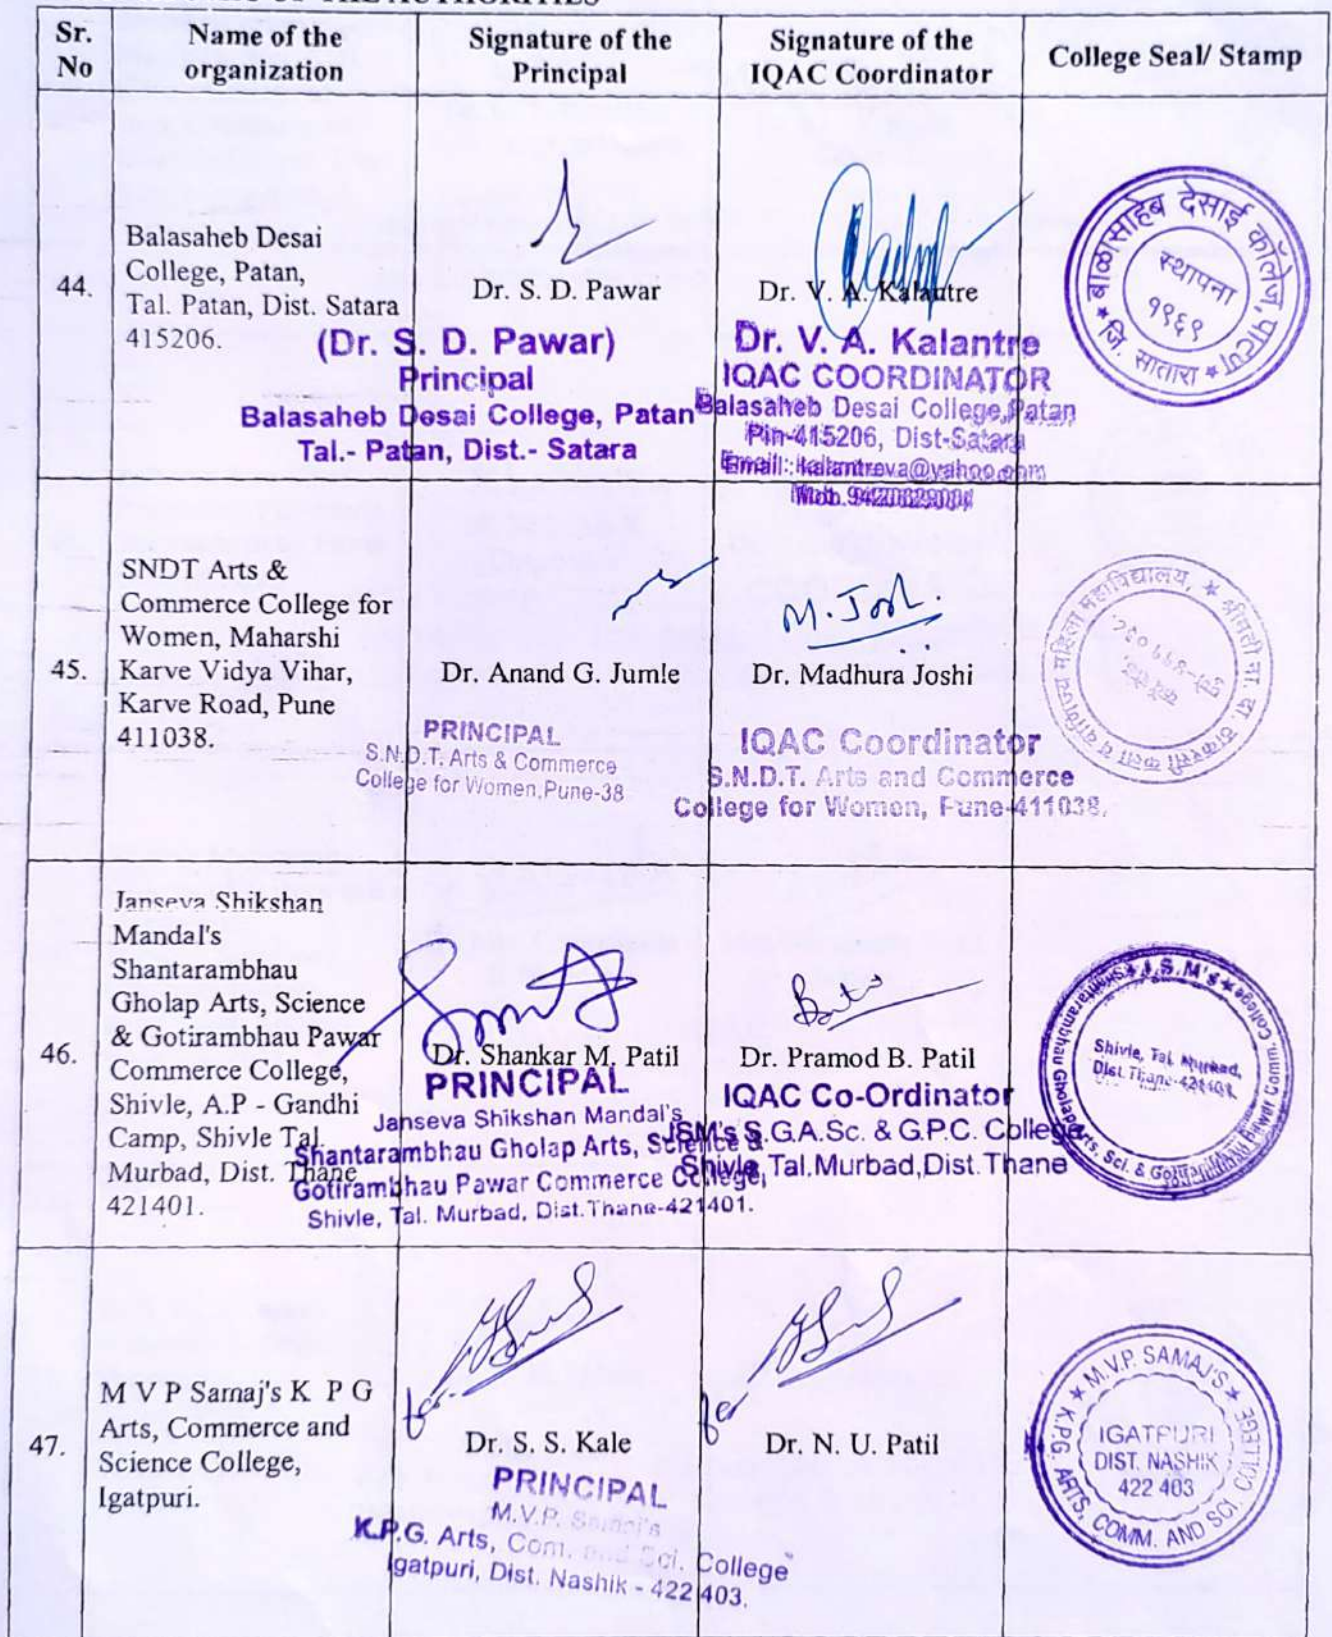 OF THE AUTHORITIES
Sr. No
Name of the organization
Signature of the Principal
Signature of the IQAC Coordinator
College Seal/ Stamp
44.
Balasaheb Desai
College, Patan,
Tal. Patan, Dist. Satara
415206.
Dr. S. D. Pawar
(Dr. S. D. Pawar)
Principal
Balasaheb Desai College, Patan
Tal.- Patan, Dist.- Satara
Dr. V. A. Kalantre
Dr. V. A. Kalantre
IQAC COORDINATOR
Balasaheb Desai College, Patan
Pin-415206, Dist-Satara
Email: kalantreva@yahoo.com
Mob.
बाळासाहेब देसाई कॉलेज, पाटण
जि. सातारा
स्थापना
१९६९
45.
SNDT Arts &
Commerce College for
Women, Maharshi
Karve Vidya Vihar,
Karve Road, Pune
411038.
Dr. Anand G. Jumle
PRINCIPAL
S.N.D.T. Arts & Commerce
College for Women,Pune-38
M. Joshi
Dr. Madhura Joshi
IQAC Coordinator
S.N.D.T. Arts and Commerce
College for Women, Pune-411038.
श्रीमती ना. दा. ठाकरसी कला व वाणिज्य महिला महाविद्यालय,
46.
Janseva Shikshan
Mandal's
Shantarambhau
Gholap Arts, Science
& Gotirambhau Pawar
Commerce College,
Shivle, A.P - Gandhi
Camp, Shivle Tal.
Murbad, Dist. Thane
421401.
Dr. Shankar M. Patil
PRINCIPAL
Janseva Shikshan Mandal's
Shantarambhau Gholap Arts, Science &
Gotirambhau Pawar Commerce College,
Shivle, Tal. Murbad, Dist.Thane-421401.
Dr. Pramod B. Patil
IQAC Co-Ordinator
JSM's S.G.A.Sc. & G.P.C. College
Shivle, Tal.Murbad,Dist.Thane
J.S.M's
Shantarambhau Gholap Arts, Sci. & Gotirambhau Pawar Comm. College
Shivle, Tal. Murbad,
Dist. Thane-421401
47.
M V P Samaj's K P G
Arts, Commerce and
Science College,
Igatpuri.
for
Dr. S. S. Kale
PRINCIPAL
M.V.P. Samaj's
K.P.G. Arts, Com. and Sci. College
Igatpuri, Dist. Nashik - 422 403.
for
Dr. N. U. Patil
M.V.P. SAMAJ'S
K.P.G. ARTS, COMM. AND SCI. COLLEGE
IGATPURI
DIST. NASHIK
422 403